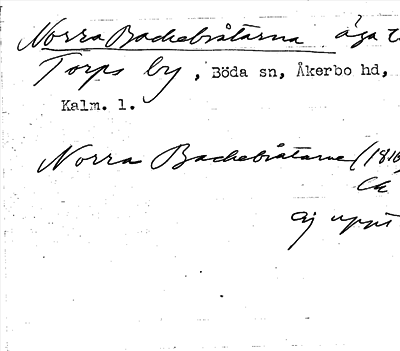 Norra Backebråtarna äga t
Torps by, Böda sn, Åkerbo hd,
Kalm. l.
Norra Backebråtarne (1816)
Ck
ej uppt